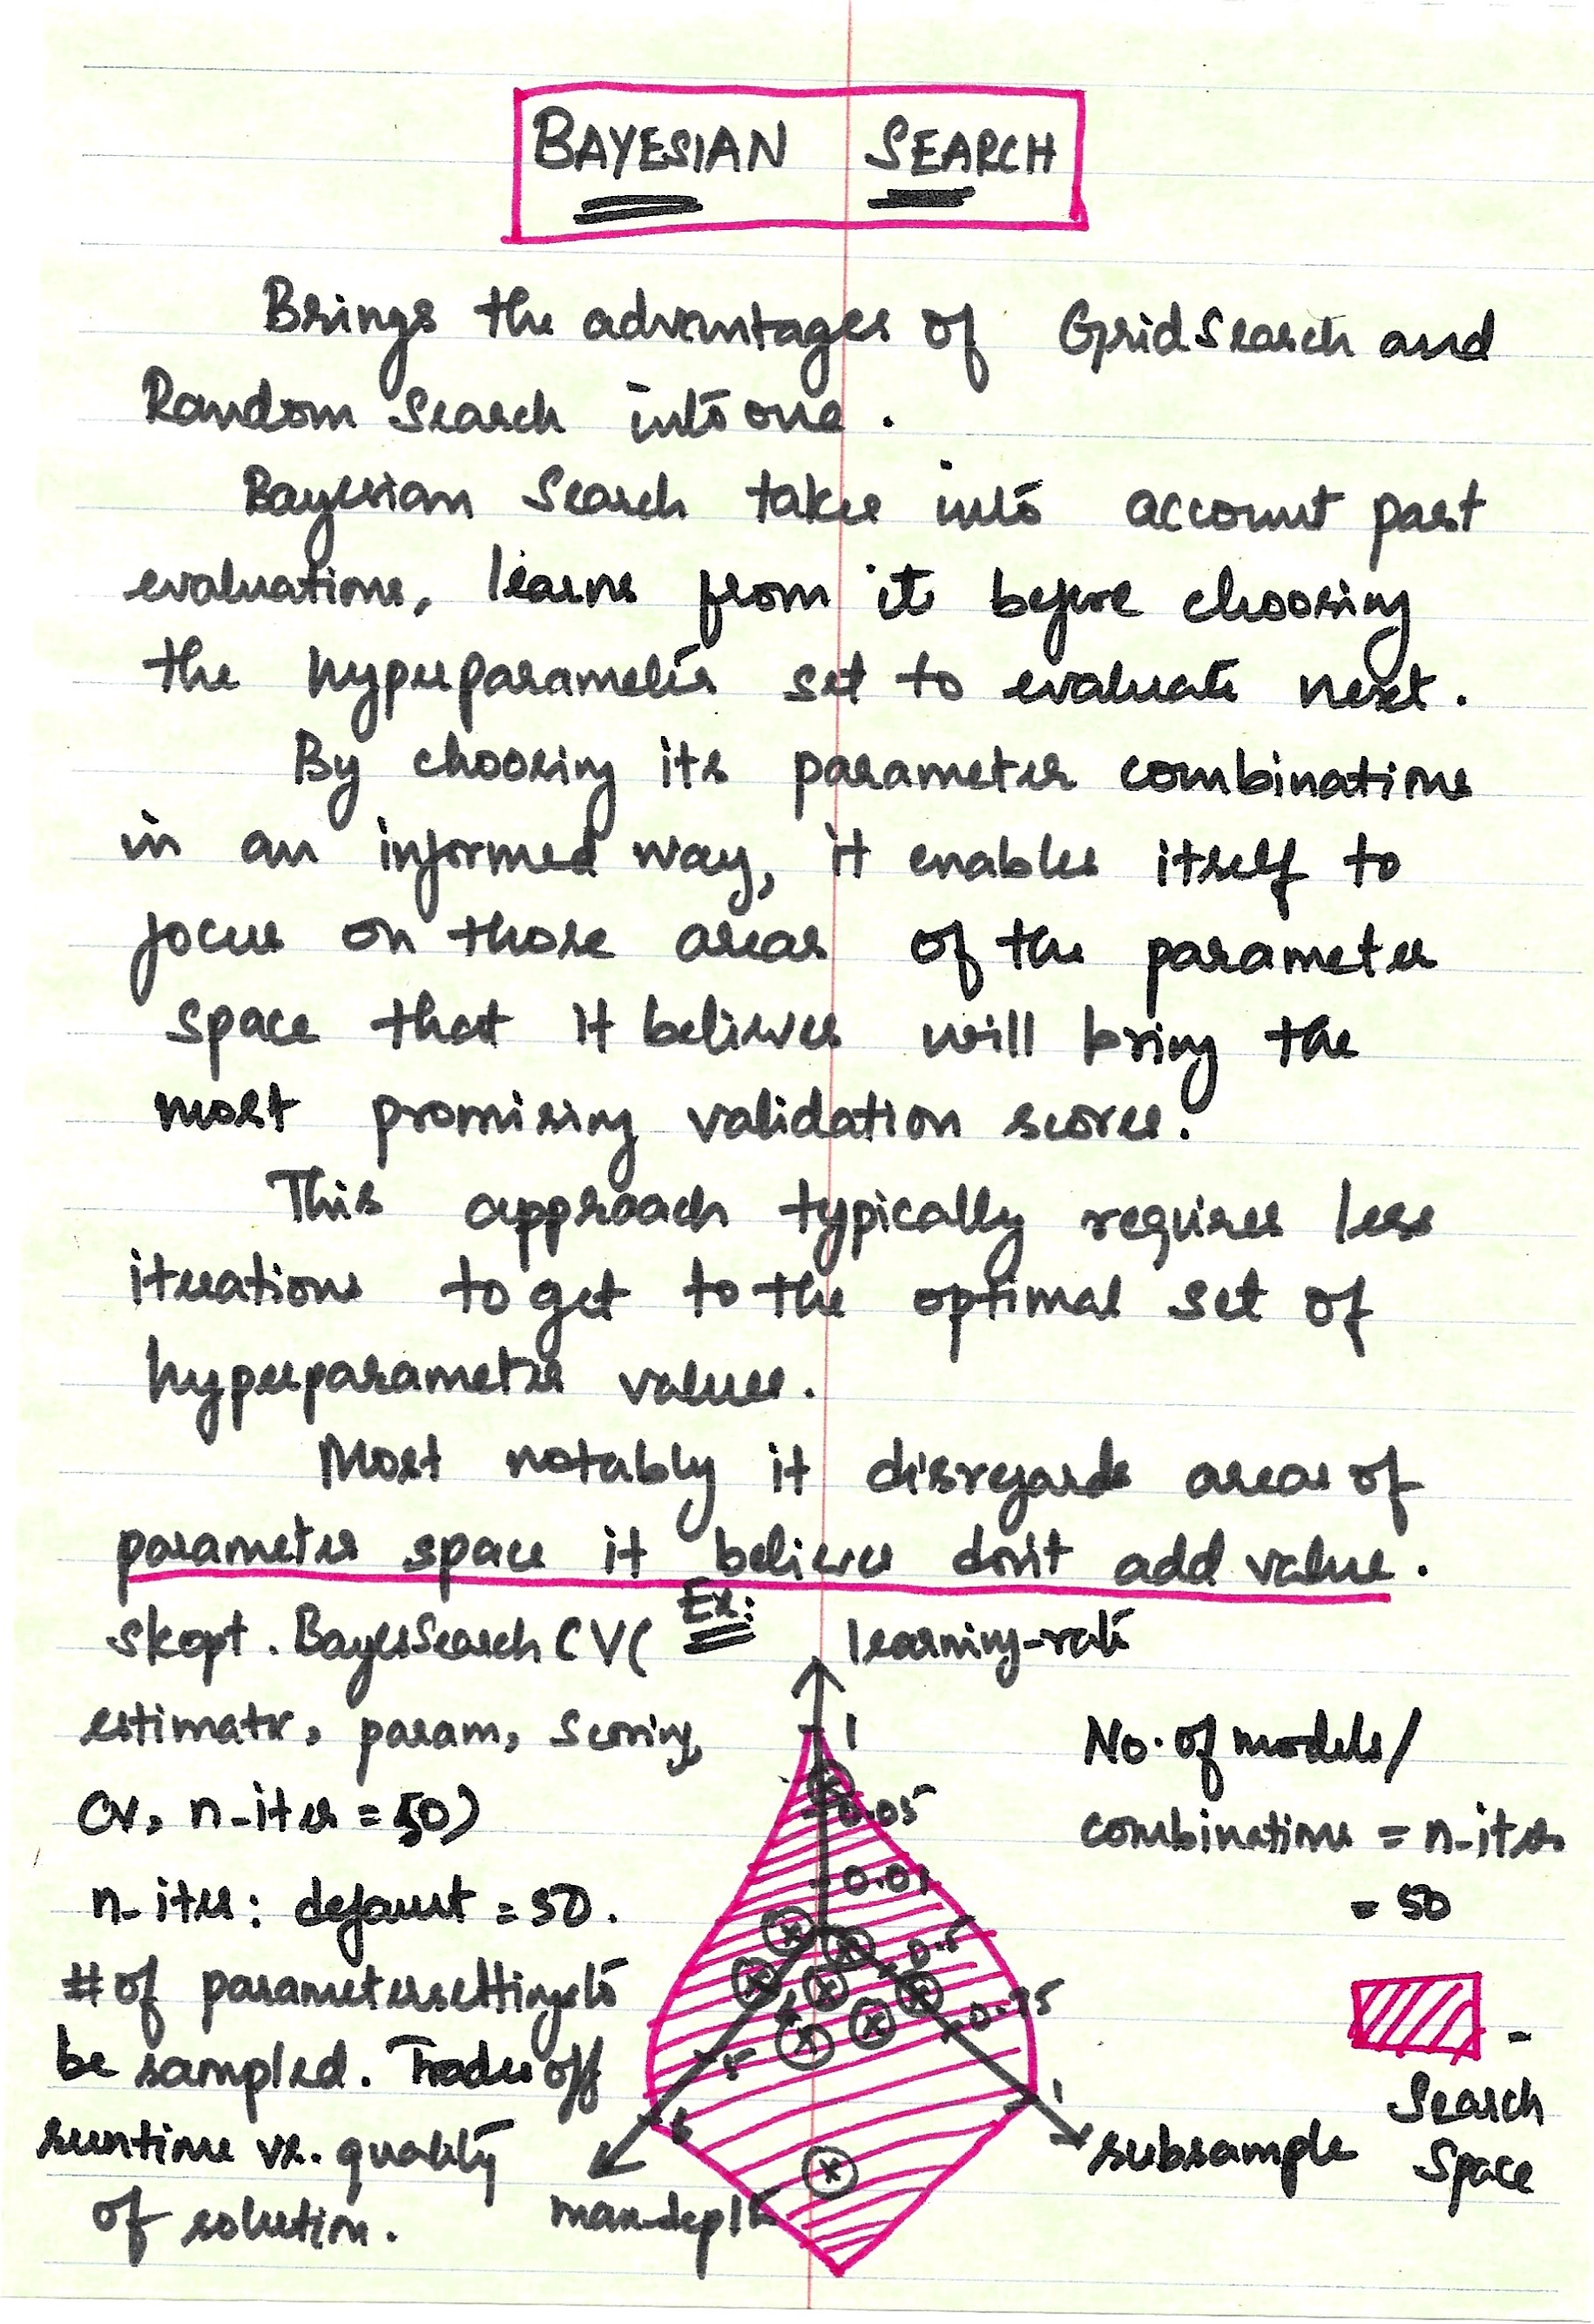 BAYESIAN SEARCH
Brings the advantages of GridSearch and
Random Search into one.
Bayesian Search takes into account past
evaluations, learns from it before choosing
the hyperparameter set to evaluate next.
By choosing its parameter combinations
in an informed way, it enables itself to
focus on those areas of the parameter
space that it believes will bring the
most promising validation scores.
This approach typically requires less
iterations to get to the optimal set of
hyperparameter values.
Most notably it disregards areas of
parameter space it believes don't add value.
skopt. BayesSearchCV(
estimator, param, scoring,
cv, n-iter = 50)
n-iter: default = 50.
# of parameter settings to
be sampled. Trades off
runtime vs. quality
of solution.
Ex:
learning-rate
1
0.05
0.01
0.5
0.75
1
subsample
5
6
max-depth
No. of models/
combinations = n-iter
= 50
- Search
Space